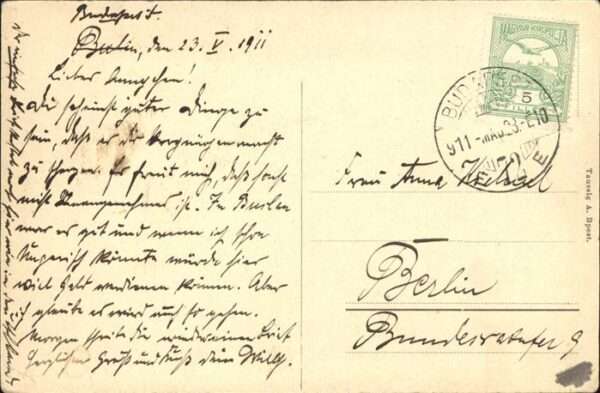 Budapest
Berlin, den 23. V. 1911
Liebes Annchen!
Du scheinst guter Dinge zu
sein, daß es dir Vergnügen macht
zu scherzen. Es freut mich, daß sonst
nicht Unangenehmes ist. In Breslau
war es gut und wenn ich schon
Ungarisch könnte würde hier
viel Geld verdienen können. Aber
ich glaube es wird auch so gehen.
Morgen schreibe dir wieder einen Brief
Herzlichen Gruß und Kuß dein Willy.
MAGYAR KIR. POSTA
5
FILLÉR
BUDAPEST
911 MAJ. 23
Frau Anna
Berlin
Bundesratufer 9
Taussig A. Bpest.